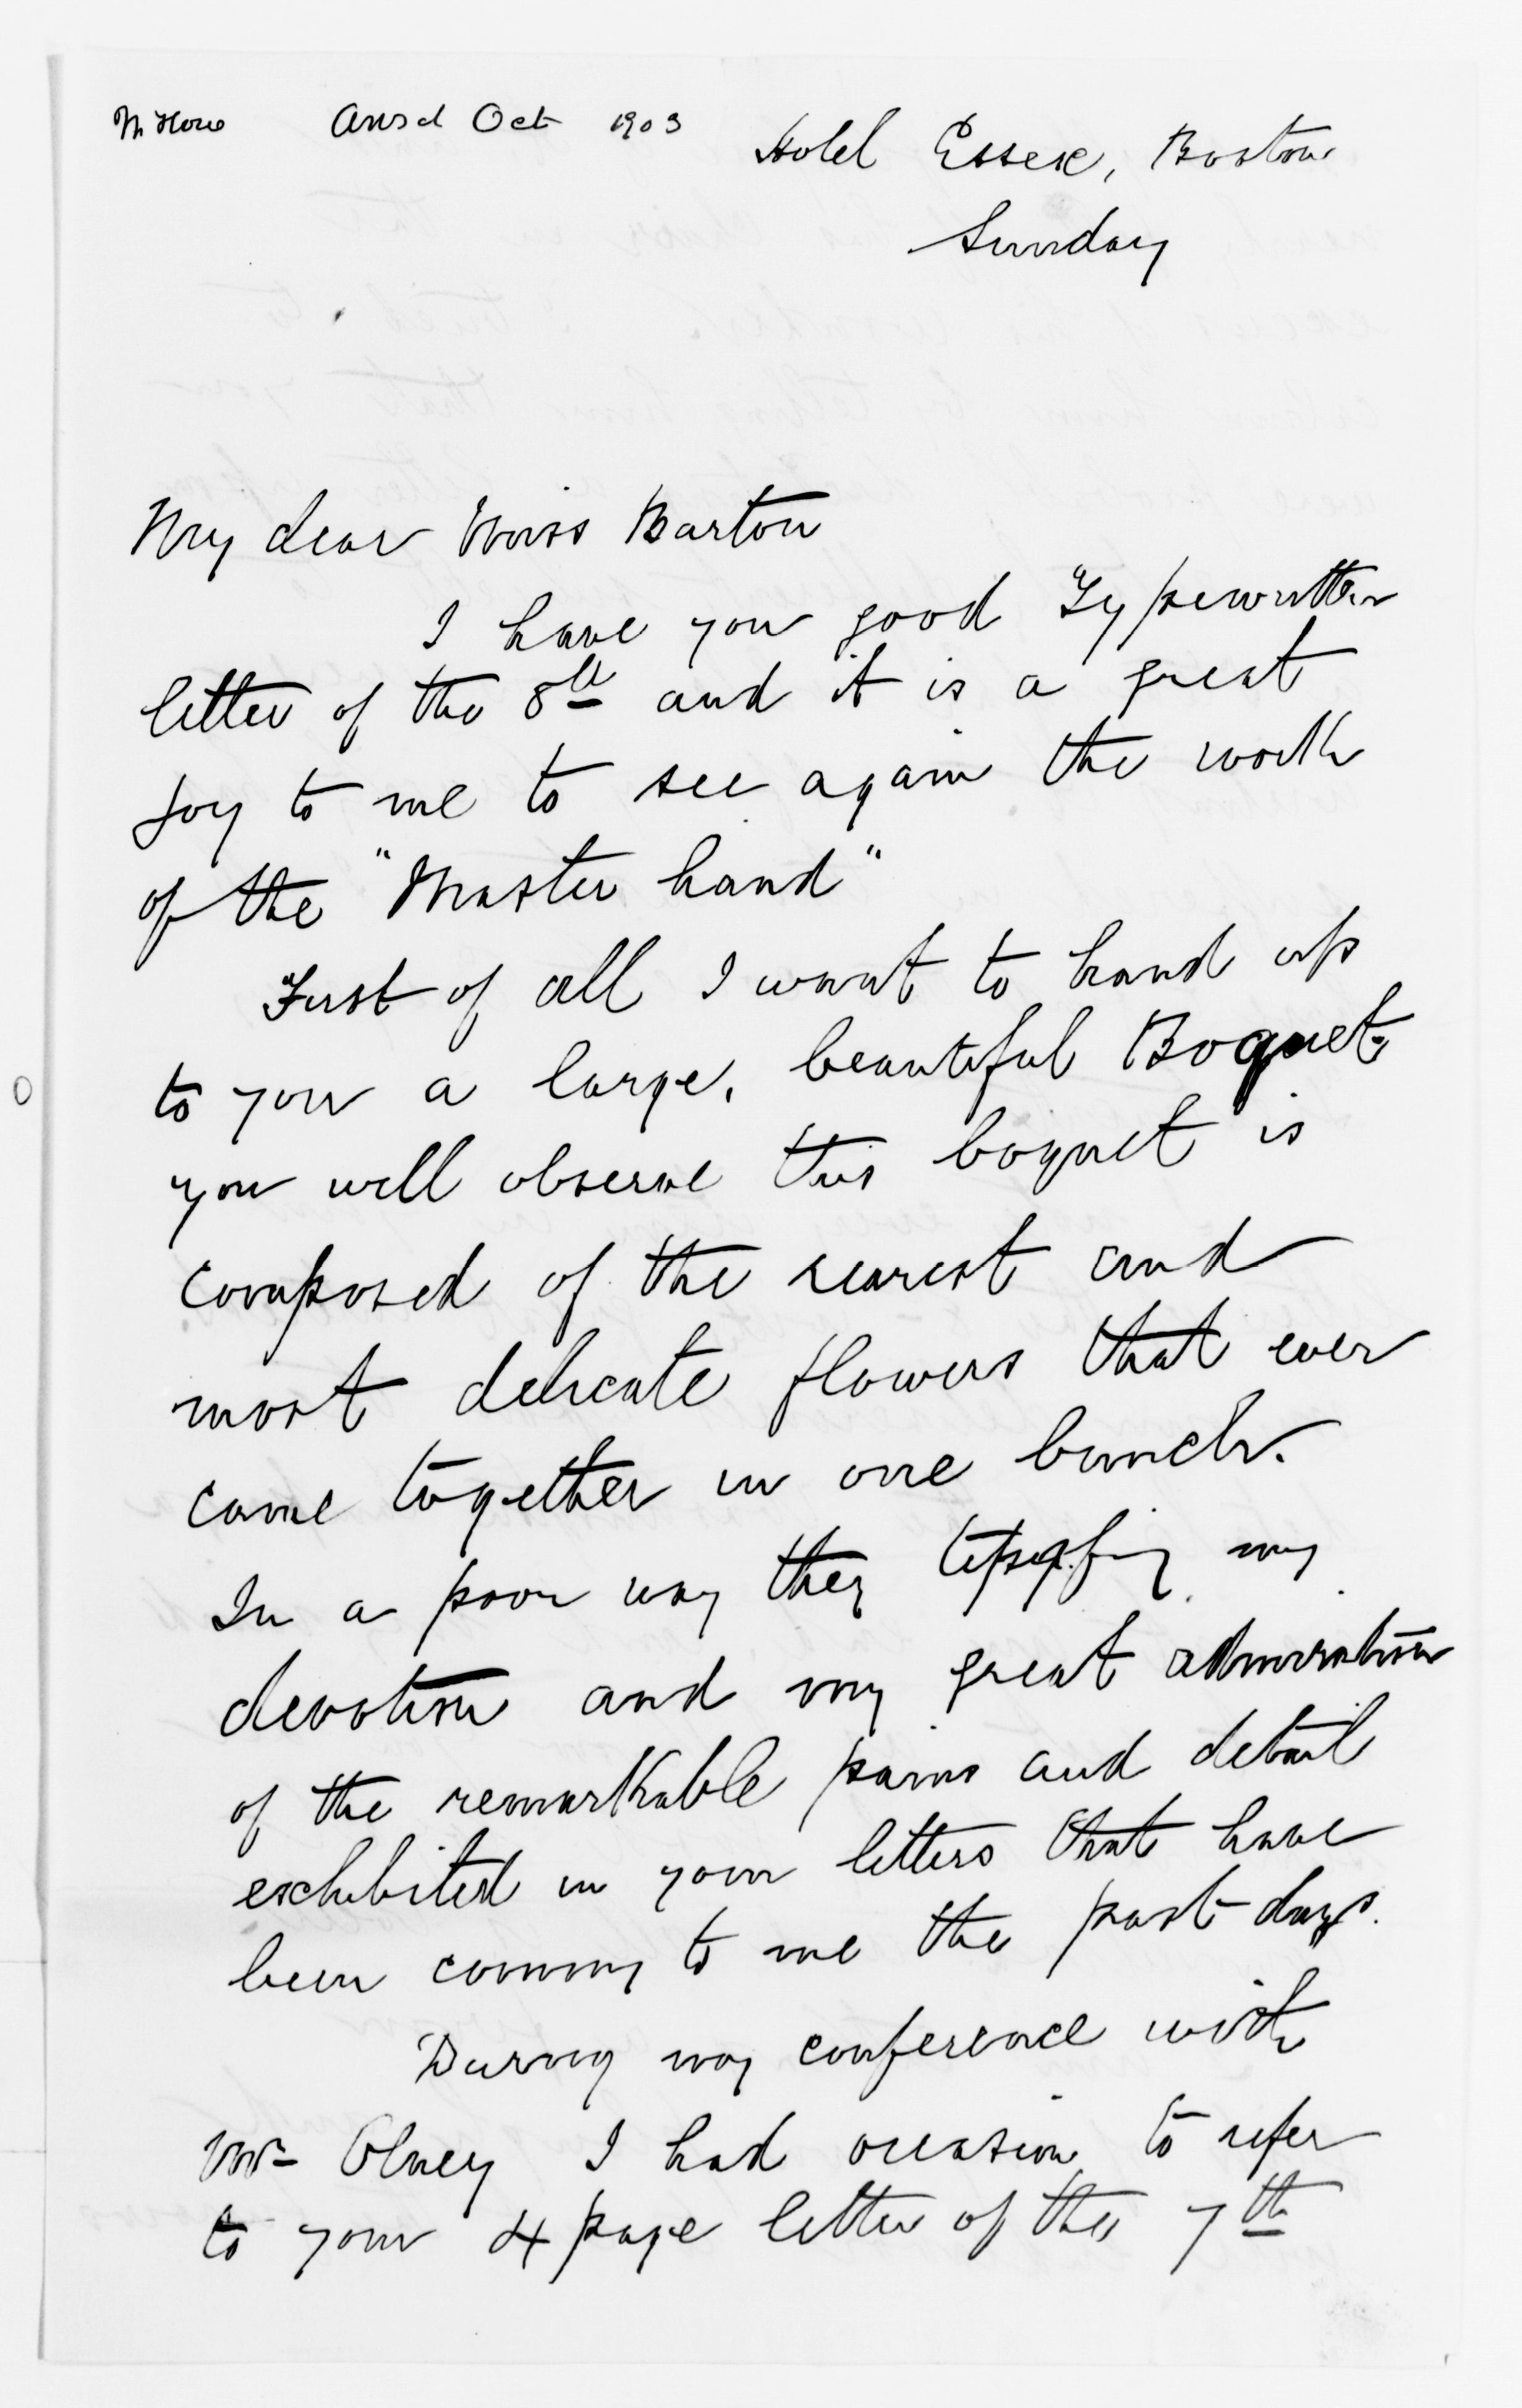 Ansd Oct 1903
Hotel Essex, Boston
Sunday
My dear Miss Barton
I have you good Typewritten
letter of the 8th and it is a great
joy to me to see again the work
of the "Master hand"
First of all I want to hand up
to you a large, beautiful Boquet
you will observe this boquet is
composed of the rearest and
most delicate flowers that ever
came together in one bunch.
In a poor way they my
devotion and my great admiration
of the remarkable pains and detail
exhibited in your letters that have
been coming to me the past days.
During my conference with
Mr Olney I had occasion to refer
to your 4 page letter of the 7th